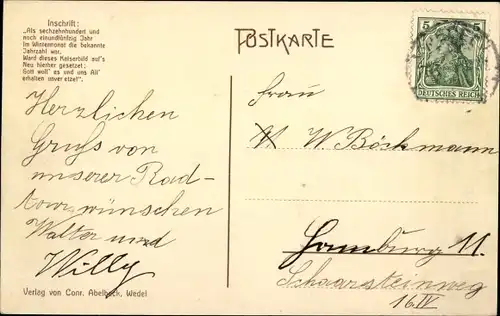 Inschrift:
„Als sechzehnhundert und
noch einundfünfzig Jahr
Im Wintermonat die bekannte
Jahrzahl war.
Ward dieses Kaiserbild auf's
Neu hierher gesetzet;
Gott woll' es und uns All'
erhalten unverletzet!".
POSTKARTE
5 5
DEUTSCHES REICH
Herzlichen
Gruß von
unserer Rad-
tour wünschen
Walter und
Willy
Frau
W Böckmann
Hamburg 11.
Schaarsteinweg
16 IV
Verlag von Conr. Abelbeck, Wedel